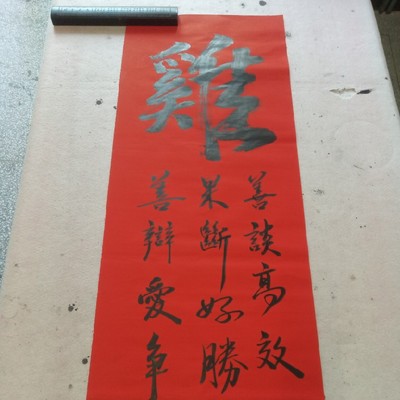 雞
善談高效
果斷好勝
善辯愛争